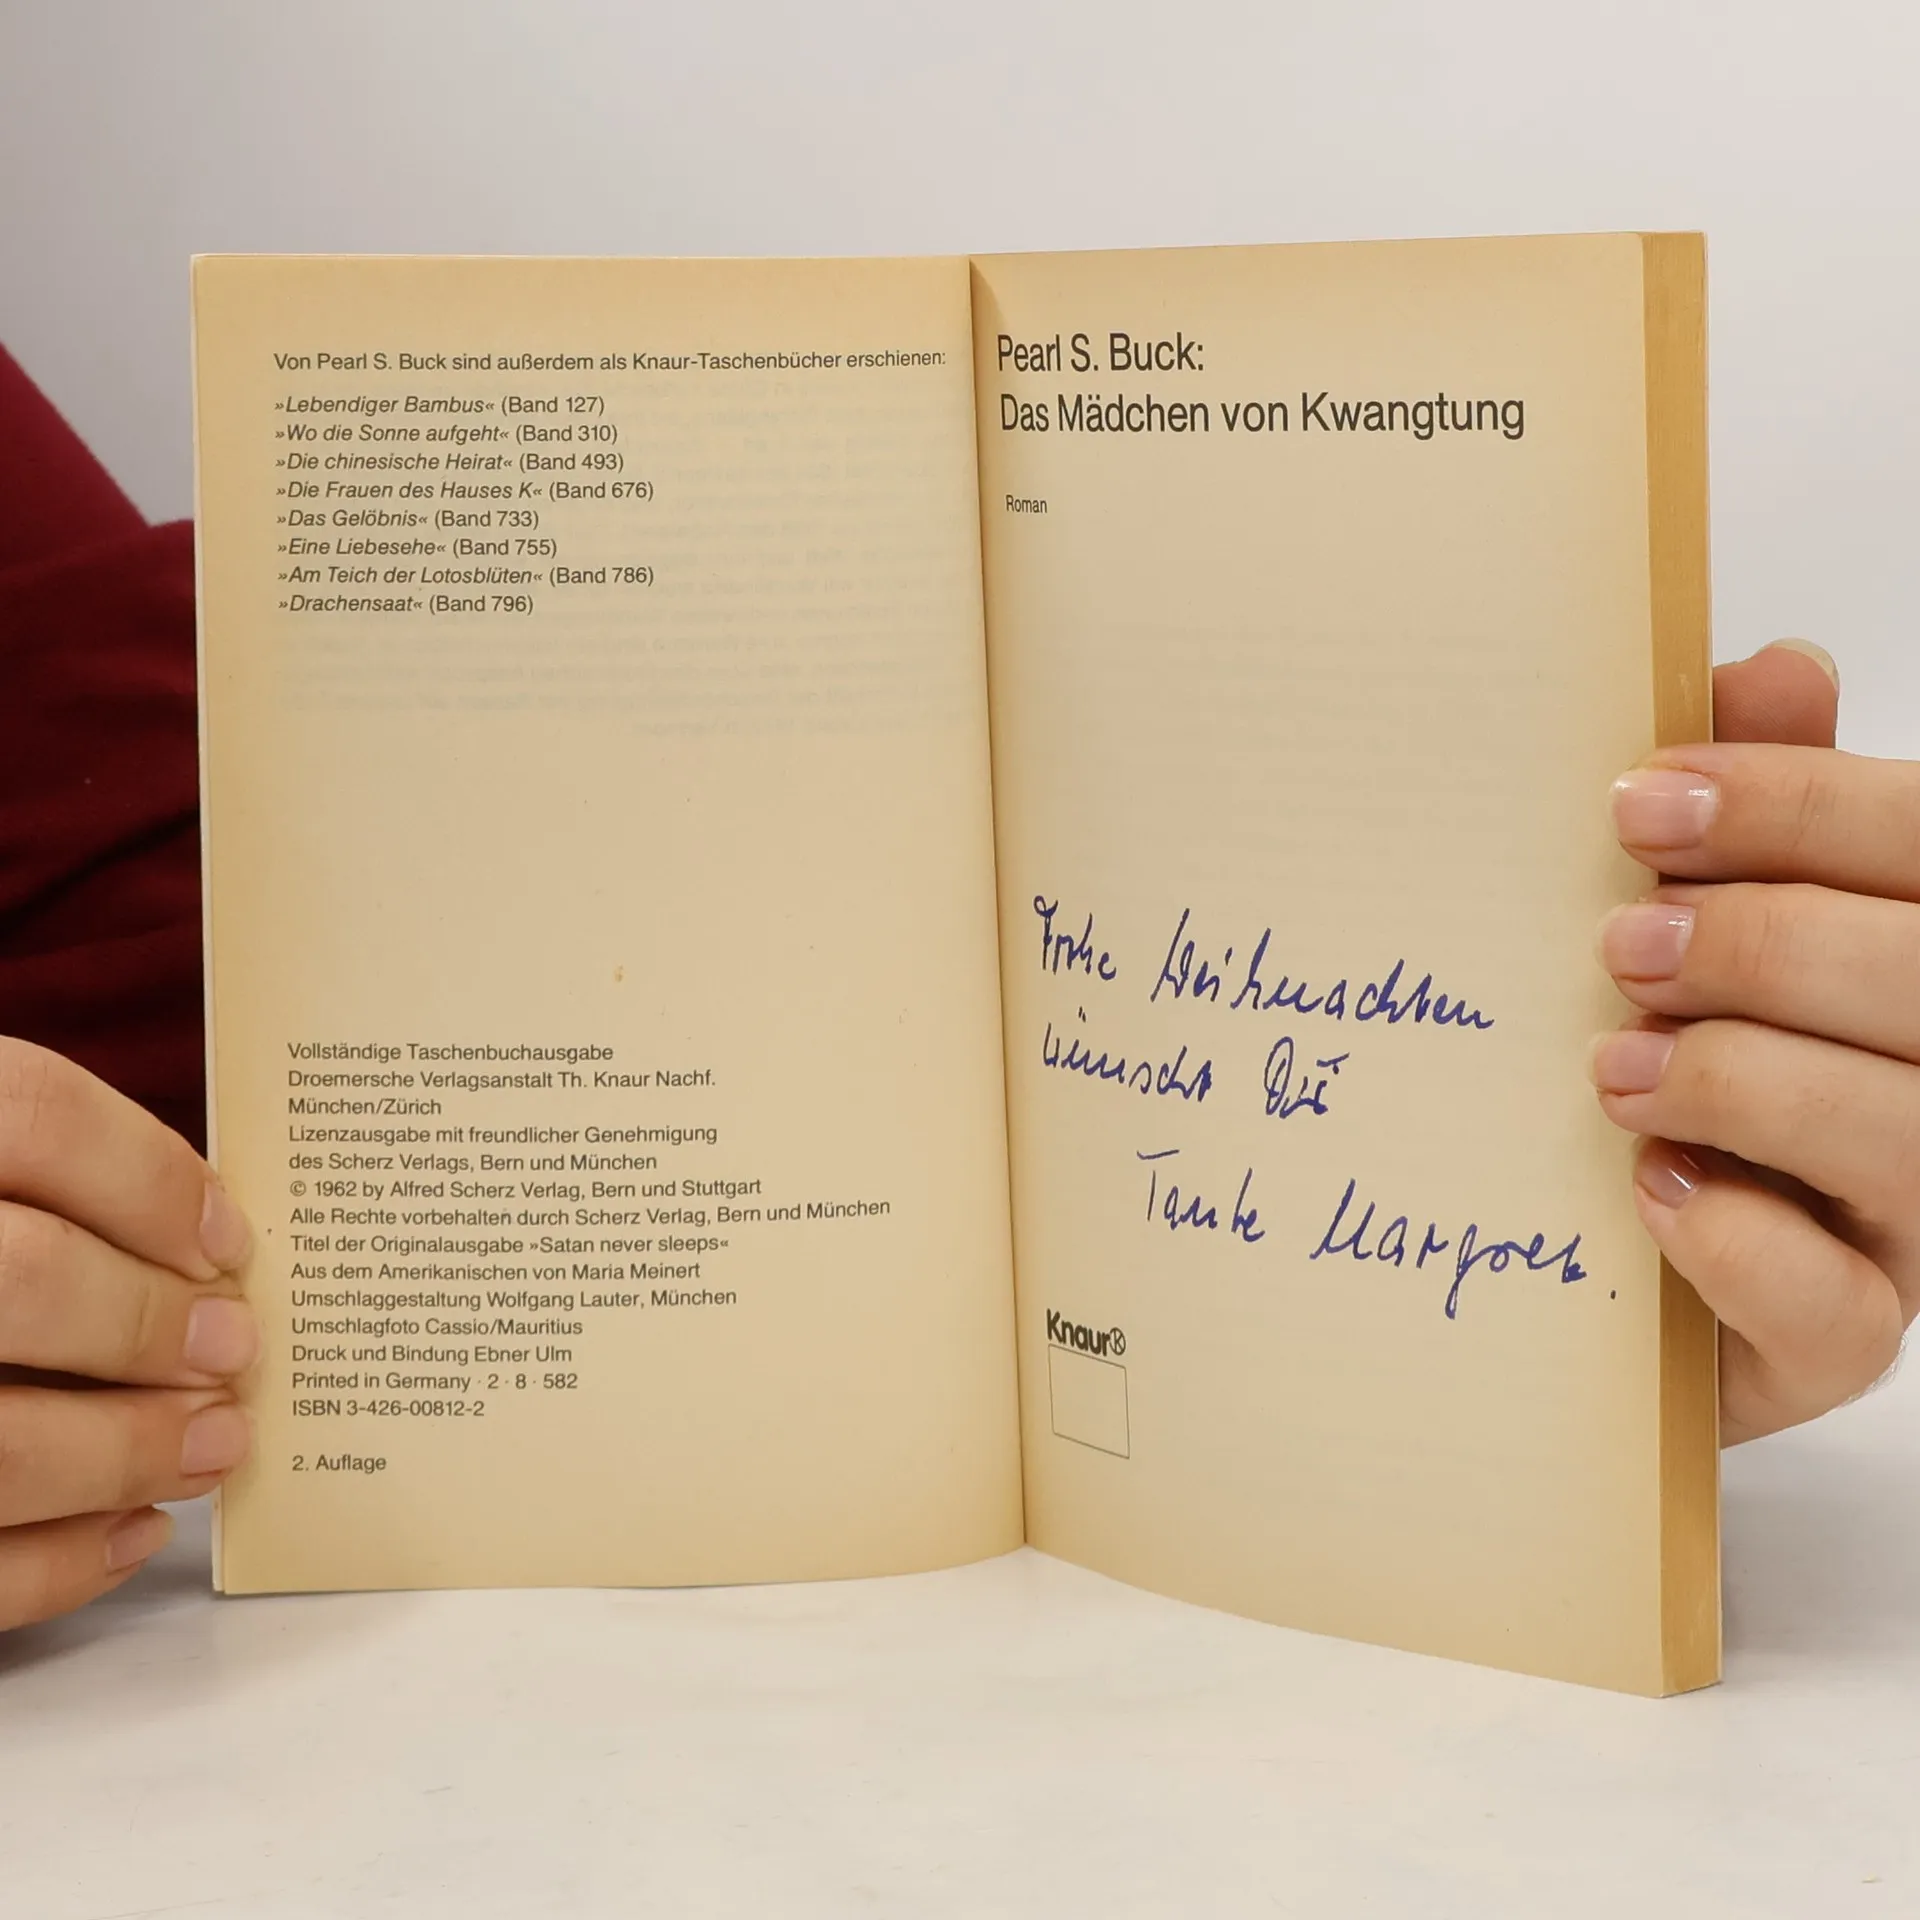 Von Pearl S. Buck sind außerdem als Knaur-Taschenbücher erschienen:
»Lebendiger Bambus« (Band 127)
»Wo die Sonne aufgeht« (Band 310)
»Die chinesische Heirat« (Band 493)
»Die Frauen des Hauses K« (Band 676)
»Das Gelöbnis« (Band 733)
»Eine Liebesehe« (Band 755)
»Am Teich der Lotosblüten« (Band 786)
»Drachensaat« (Band 796)
Vollständige Taschenbuchausgabe
Droemersche Verlagsanstalt Th. Knaur Nachf.
München/Zürich
Lizenzausgabe mit freundlicher Genehmigung
des Scherz Verlags, Bern und München
© 1962 by Alfred Scherz Verlag, Bern und Stuttgart
Alle Rechte vorbehalten durch Scherz Verlag, Bern und München
Titel der Originalausgabe »Satan never sleeps«
Aus dem Amerikanischen von Maria Meinert
Umschlaggestaltung Wolfgang Lauter, München
Umschlagfoto Cassio/Mauritius
Druck und Bindung Ebner Ulm
Printed in Germany · 2 · 8 · 582
ISBN 3-426-00812-2
2. Auflage
Pearl S. Buck:
Das Mädchen von Kwangtung
Roman
Frohe Weihnachten
wünscht Dir
Tante Margret.
Knaur®